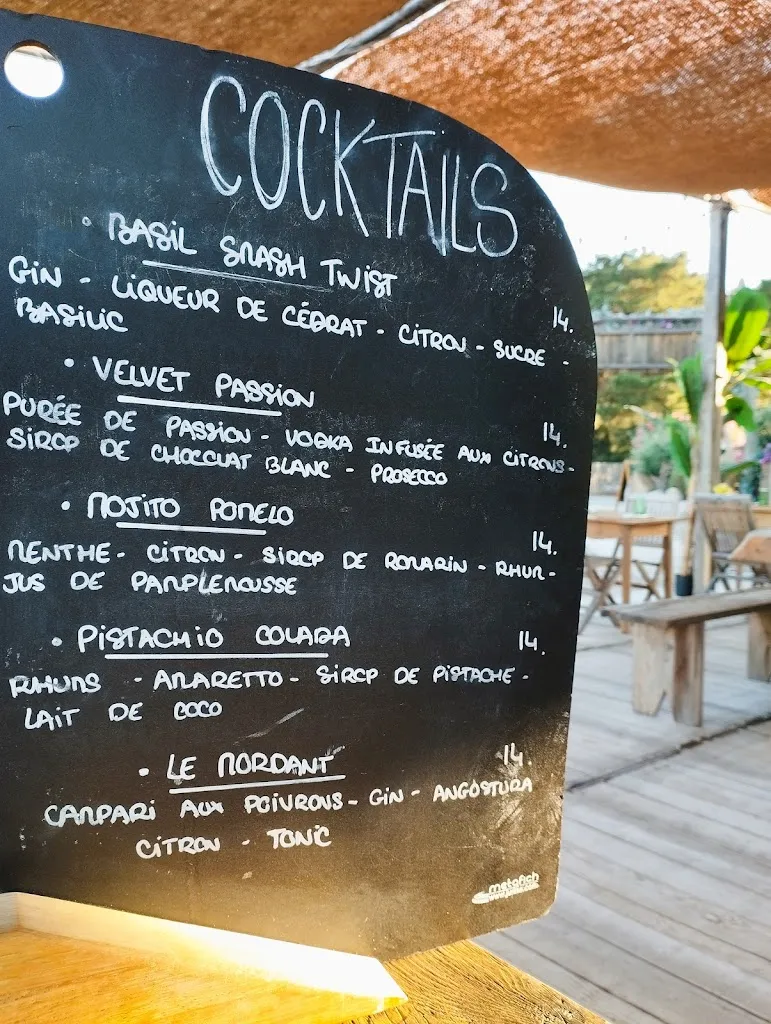 COCKTAILS
• BASIL SMASH TWIST
14.
GIN - LIQUEUR DE CÉDRAT - CITRON - SUCRE -
BASILIC
• VELVET PASSION
14.
PURÉE DE PASSION - VODKA INFUSÉE AUX CITRONS -
SIROP DE CHOCOLAT BLANC - PROSECCO
• MOJITO POMELO
14.
MENTHE - CITRON - SIROP DE ROMARIN - RHUM -
JUS DE PAMPLEMOUSSE
• PISTACHIO COLADA
14.
RHUMS - AMARETTO - SIROP DE PISTACHE -
LAIT DE COCO
• LE MORDANT
14.
CAMPARI AUX POIVRONS - GIN - ANGOSTURA
CITRON - TONIC
metafich